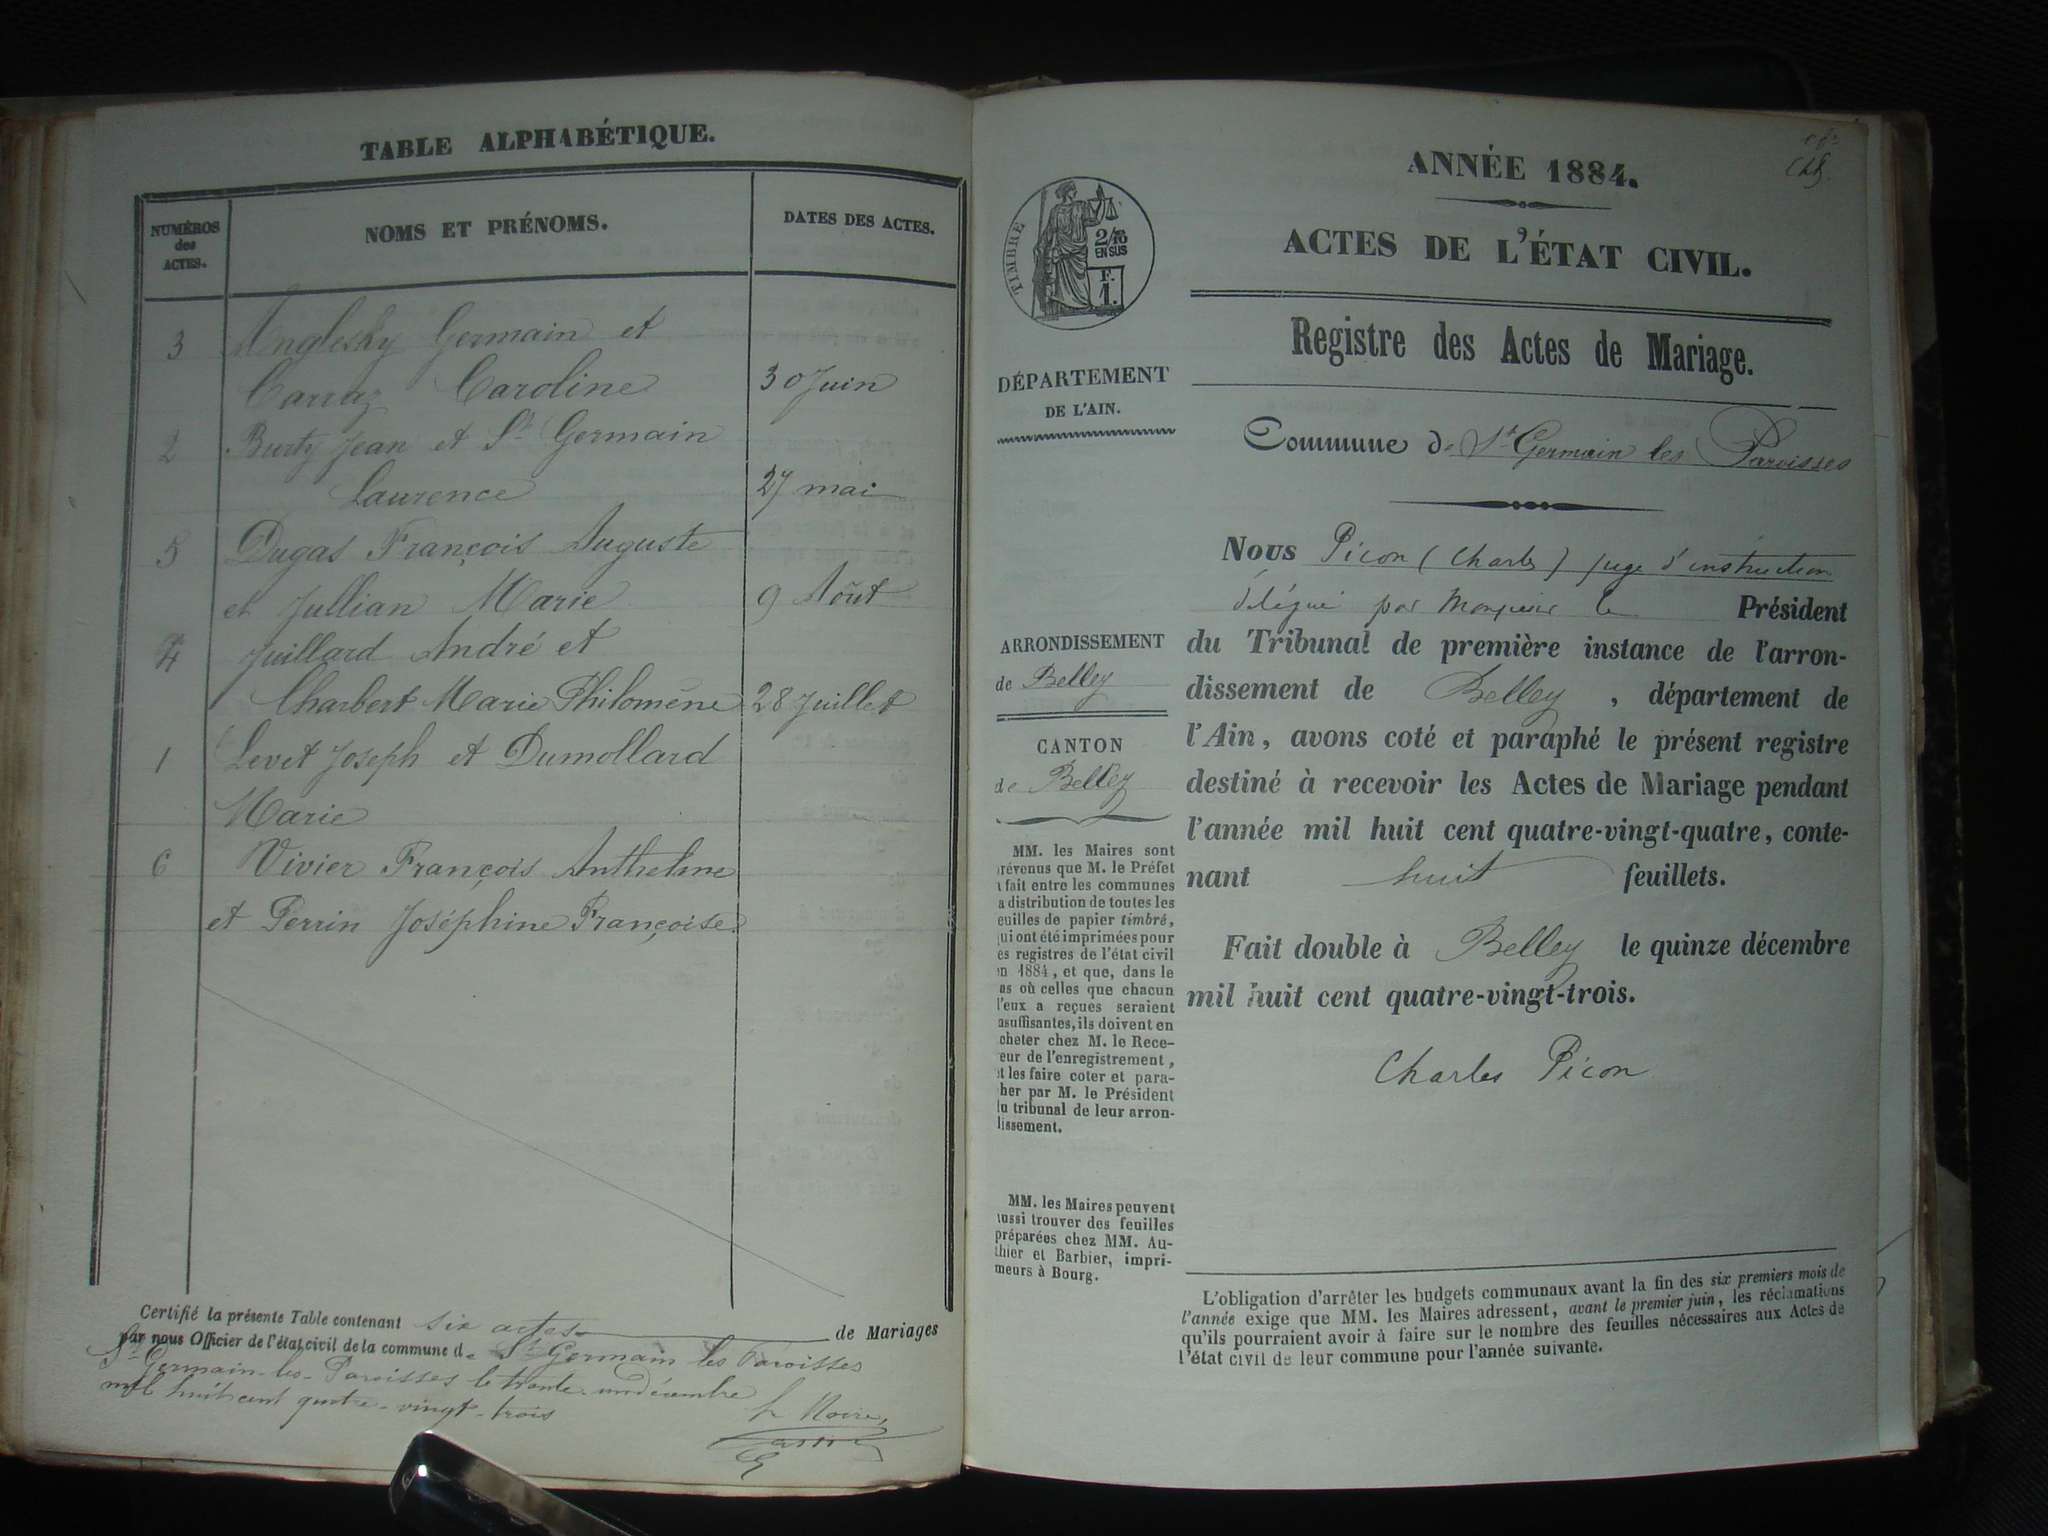 TABLE ALPHABÉTIQUE.
NUMÉROS
des
ACTES.
NOMS ET PRÉNOMS.
DATES DES ACTES.
3 Anglesky Germain et
Carraz Caroline 30 Juin
2 Burty Jean et St Germain
Laurence 27 mai
5 Dugas François Auguste
et Jullian Marie 9 Août
4 Juillard André et
Charbert Marie Philomène 28 Juillet
1 Levet Joseph et Dumollard
Marie
6 Vivier François Anthelme
et Perrin Joséphine Françoise
Certifié la présente Table contenant six actes de Mariages
par nous Officier de l'état civil de la commune de St Germain les Paroisses
St Germain-les-Paroisses le trente un décembre
mil huit cent quatre-vingt-trois
ANNÉE 1884.
ACTES DE L'ÉTAT CIVIL.
TIMBRE
2/10
EN SUS
F.
1.
Registre des Actes de Mariage.
DÉPARTEMENT
DE L'AIN.
Commune de St Germain les Paroisses
Nous Picon (Charles) juge d'instruction
délégué par Monsieur le Président
du Tribunal de première instance de l'arron-
dissement de Belley, département de
l'Ain, avons coté et paraphé le présent registre
destiné à recevoir les Actes de Mariage pendant
l'année mil huit cent quatre-vingt-quatre, conte-
nant huit feuillets.
Fait double à Belley le quinze décembre
mil huit cent quatre-vingt-trois.
Charles Picon
ARRONDISSEMENT
de Belley
CANTON
de Belley
MM. les Maires sont
révenus que M. le Préfet
a fait entre les communes
a distribution de toutes les
euilles de papier timbré,
qui ont été imprimées pour
es registres de l'état civil
en 1884, et que, dans le
as où celles que chacun
d'eux a reçues seraient
nsuffisantes, ils doivent en
cheter chez M. le Rece-
eur de l'enregistrement,
et les faire coter et para-
her par M. le Président
du tribunal de leur arron-
lissement.
MM. les Maires peuvent
aussi trouver des feuilles
préparées chez MM. Au-
thier et Barbier, impri-
meurs à Bourg.
L'obligation d'arrêter les budgets communaux avant la fin des six premiers mois de
l'année exige que MM. les Maires adressent, avant le premier juin, les réclamations
qu'ils pourraient avoir à faire sur le nombre des feuilles nécessaires aux Actes de
l'état civil de leur commune pour l'année suivante.